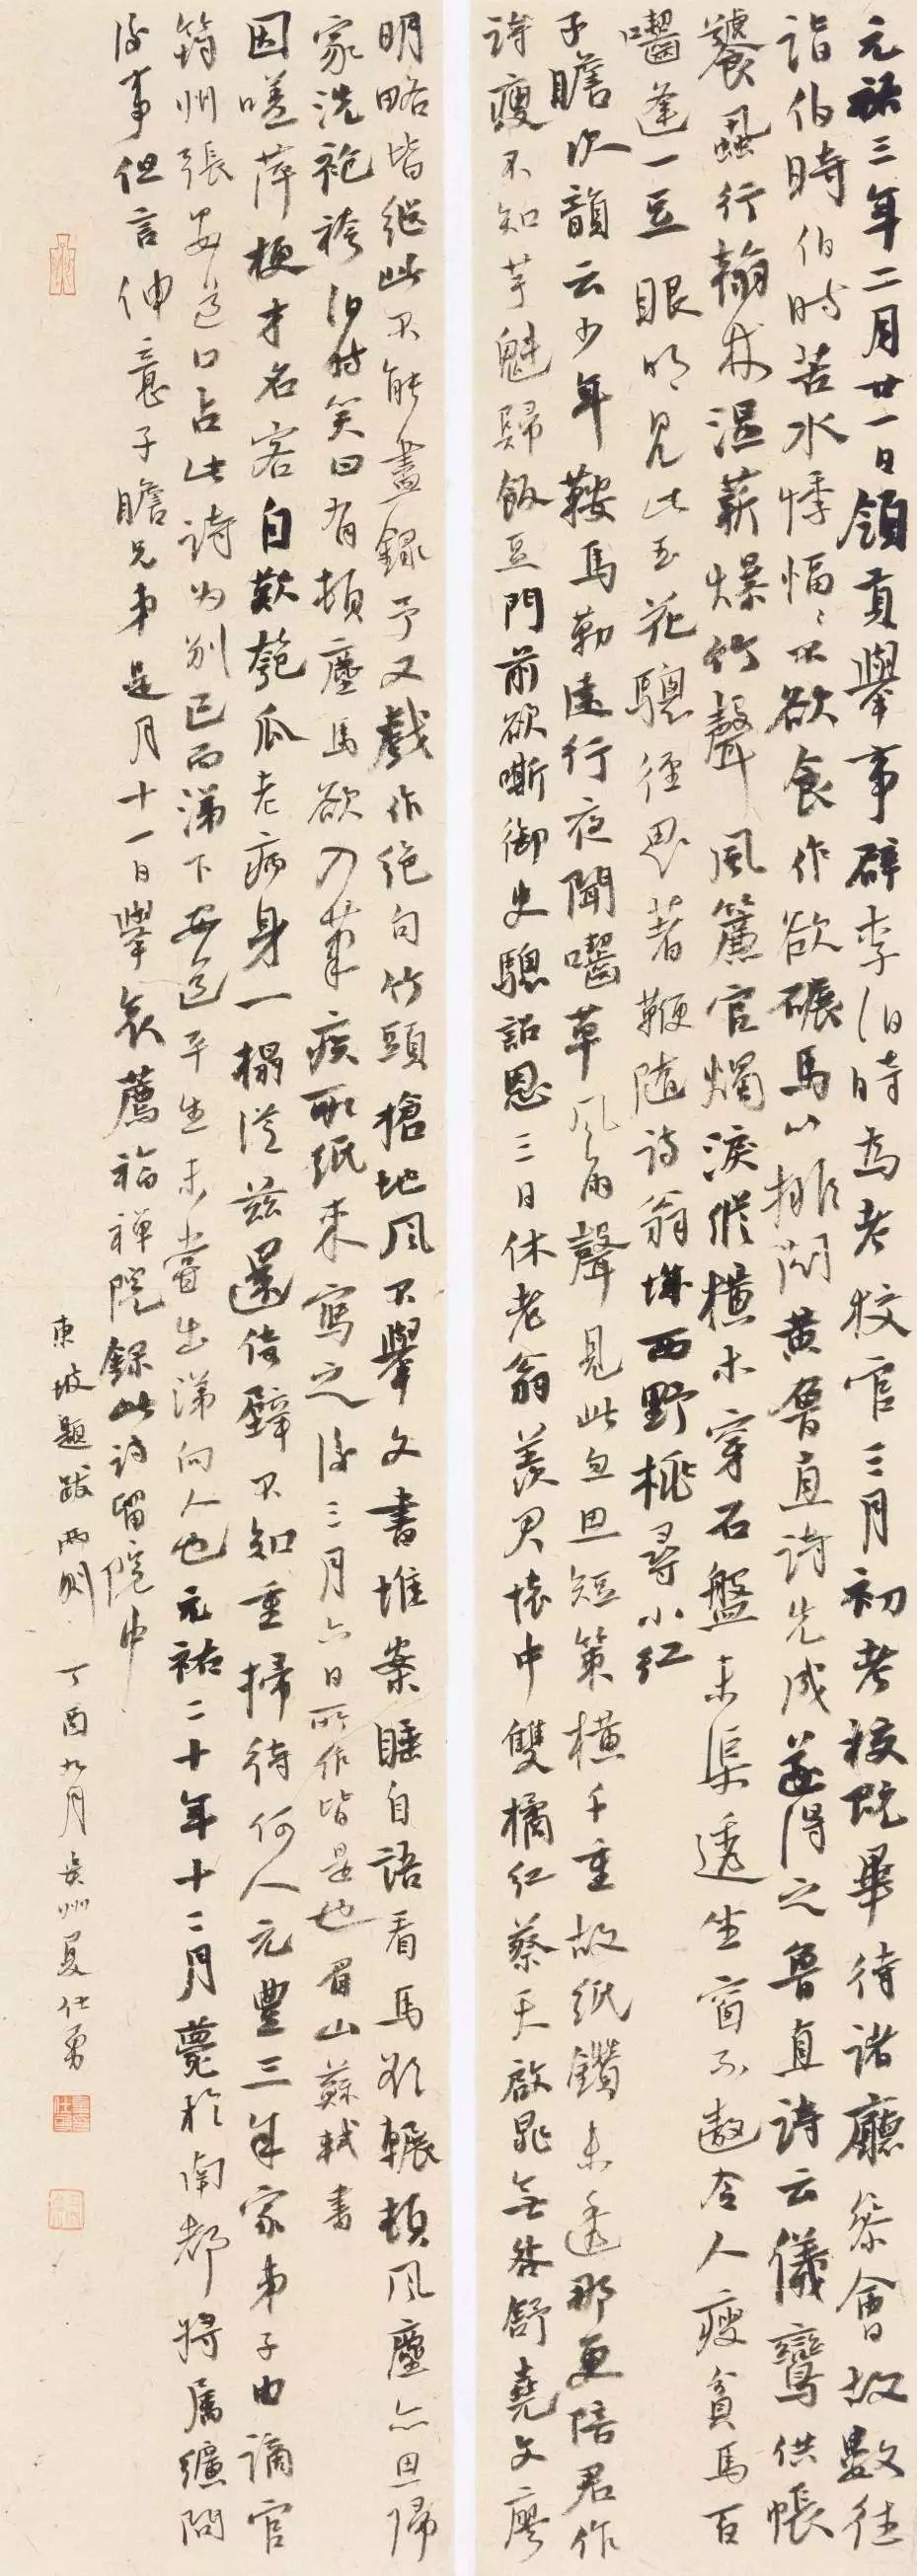 元祐三年二月廿一日領貢舉事辟李伯時為考校官三月初考校既畢待諸廳參會故數往
詣伯時伯時苦水悸愊愊不欲食作欲碾馬以排悶黃魯直詩先成遂得之魯直詩云儀鸞供帳
饕虱行翰林溫薪爆竹聲風簾官燭淚縱橫木穿石盤未渠透坐窗不遨令人瘦貧馬百
囓逢一豆眼明見此玉花驄徑思著鞭隨詩翁城西野桃尋小紅
子瞻次韻云少年鞍馬勒遠行夜聞囓草風雨聲見此忽思短策橫千重故紙鑽未透那更陪君作
詩瘦不知芋魁歸飯豆門前欲嘶御史驄詔恩三日休老翁羨君懷中雙橘紅蔡天啟晁無咎舒堯文廖
明略皆繼此不能盡錄予又戲作絕句竹頭搶地風不舉文書堆案睡自語看馬欲輾頓風塵亦思歸
家洗袍袴伯時笑曰有頓塵馬欲入筆疾取紙來寫之後三月六日所作皆是也眉山蘇軾書
因嗟萍梗才名客自歎匏瓜老病身一榻從茲還倚壁不知重掃待何人元豐三年家弟子由謫官
筠州張安道口占此詩為別已而涕下安道平生未嘗出涕向人也元祐二十年十二月薨於南都將屬纊問
後事但言伸意子瞻兄弟是月十一日舉哀薦福禪院錄此詩留院中
東坡題跋兩則 丁酉九月 吳州夏仕勇